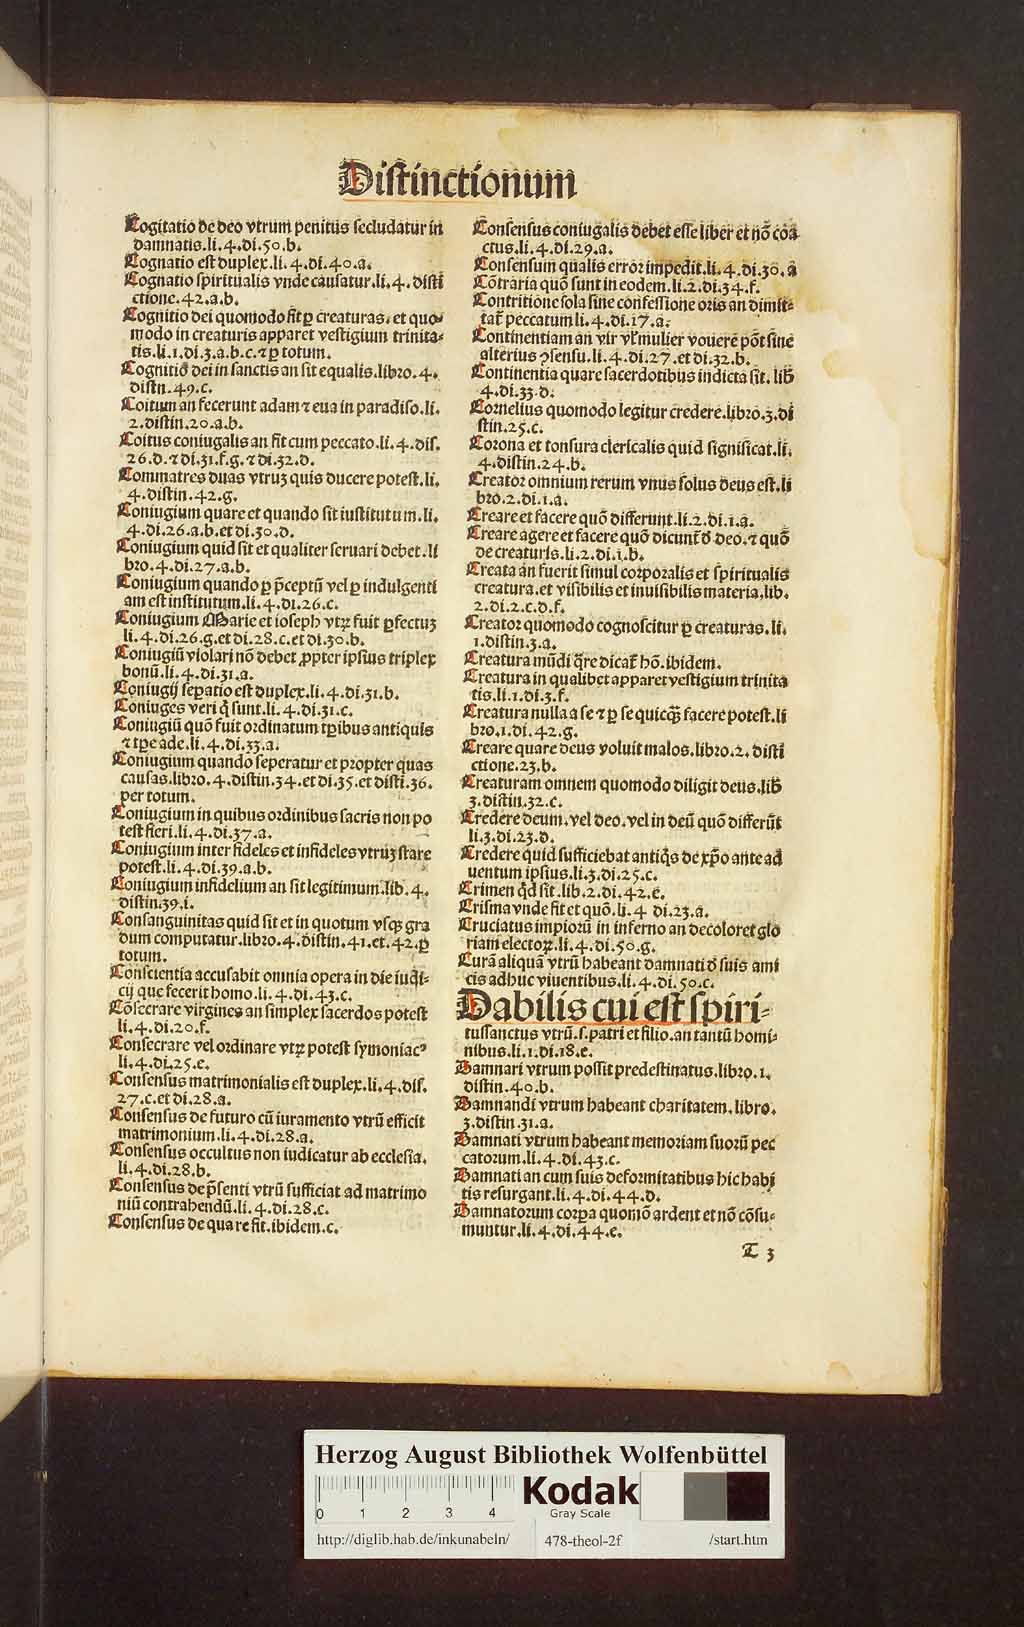 Distinctionum
Cogitatio de deo vtrum penitus secludatur in
damnatis.li.4.di.50.b.
Cognatio est duplex.li.4.di.40.a.
Cognatio spiritualis vnde causatur.li.4.disti
ctione.42.a.b.
Cognitio dei quomodo fit ꝑ creaturas, et quo-
modo in creaturis apparet vestigium trinita-
tis.li.1.di.3.a.b.c.⁊ ꝑ totum.
Cognitio dei in sanctis an sit equalis.libro.4.
distn.49.c.
Coitum an fecerunt adam ⁊ eua in paradiso.li.
2.distin.20.a.b.
Coitus coniugalis an fit cum peccato.li.4.dis.
26.d.⁊ di.31.f.g.⁊ di.32.d.
Commatres duas vtruꝫ quis ducere potest.li.
4.distin.42.g.
Coniugium quare et quando sit iustitutum.li.
4.di.26.a.b.et di.30.d.
Coniugium quid sit et qualiter seruari debet.li
bro.4.di.27.a.b.
Coniugium quando ꝑ p̄ceptū vel ꝑ indulgenti
am est institutum.li.4.di.26.c.
Coniugium Marie et ioseph vtrꝫ fuit ꝑfectuꝫ
li.4.di.26.g.et di.28.c.et di.30.b.
Coniugiū violari nō debet ꝓpter ipsius triplex
bonū.li.4.di.31.a.
Coniugij seꝑatio est duplex.li.4.di.31.b.
Coniuges veri q̄ sunt.li.4.di.31.c.
Coniugiū quō fuit ordinatum tꝑibus antiquis
⁊ tꝑe ade.li.4.di.33.a.
Coniugium quando seperatur et propter quas
causas.libro.4.distin.34.et di.35.et disti.36.
per totum.
Coniugium in quibus ordinibus sacris non po
test fieri.li.4.di.37.a.
Coniugium inter fideles et infideles vtruꝫ stare
potest.li.4.di.39.a.b.
Coniugium infidelium an sit legitimum.lib.4.
distin.39.i.
Consanguinitas quid sit et in quotum vsqꝫ gra
dum computatur.libro.4.distin.41.et.42.ꝑ
totum.
Conscientia accusabit omnia opera in die iudi-
cij que fecerit homo.li.4.di.43.c.
Cōsecrare virgines an simplex sacerdos potest
li.4.di.20.f.
Consecrare vel ordinare vtrꝫ potest symoniacꝰ
li.4.di.25.c.
Consensus matrimonialis est duplex.li.4.dis.
27.c.et di.28.a.
Consensus de futuro cū iuramento vtrū efficit
matrimonium.li.4.di.28.a.
Consensus occultus non iudicatur ab ecclesia.
li.4.di.28.b.
Consensus de p̄senti vtrū sufficiat ad matrimo
niū contrahendū.li.4.di.28.c.
Consensus de qua re fit.ibidem.c.
Consensus coniugalis debet esse liber et nō coa
ctus.li.4.di.29.a.
Consensum qualis error impedit.li.4.di.30.a
Cōtraria quō sunt in eodem.li.2.di.34.f.
Contritione sola sine confessione oris an dimit-
tat̄ peccatum li.4.di.17.a.
Continentiam an vir vl̄ mulier vouere pōt sine
alterius ꝯsensu.li.4.di.27.et di.32.b.
Continentia quare sacerdotibus indicta sit. lib̄
4.di.33.d.
Cornelius quomodo legitur credere.libro.3.di
stin.25.c.
Corona et tonsura clericalis quid significat.li.
4.distin.24.b.
Creator omnium rerum vnus solus deus est.li
bro.2.di.1.a.
Creare et facere quō differunt.li.2.di.1.a.
Creare agere et facere quō dicunt̄ d̄ deo.⁊ quō
de creaturis.li.2.di.1.b.
Creata an fuerit simul corporalis et spiritualis
creatura.et visibilis et inuisibilis materia.lib.
2.di.2.c.d.f.
Creator quomodo cognoscitur ꝑ creaturas.li.
1.distin.3.a.
Creatura mūdi q̄re dicat̄ hō.ibidem.
Creatura in qualibet apparet vestigium trinita
tis.li.1.di.3.f.
Creatura nulla a se ⁊ ꝑ se quicqꝫ facere potest.li
bro.1.di.42.g.
Creare quare deus voluit malos.libro.2.disti
ctione.23.b.
Creaturam omnem quomodo diligit deus.lib̄
3.distin.32.c.
Credere deum.vel deo.vel in deū quō differūt
li.3.di.23.d.
Credere quid sufficiebat antiq̄s de xp̄o ante ad
uentum ipsius.li.3.di.25.c.
Crimen qd̄ sit.lib.2.di.42.e.
Crisma vnde fit et quō.li.4 di.23.a.
Cruciatus impiorū in inferno an decoloret glo
riam electoꝝ.li.4.di.50.g.
Curā aliquā vtrū habeant damnati d̄ suis ami
cis adhuc viuentibus.li.4.di.50.c.
Dabilis cui est spiri-
tussanctus vtrū.s.patri et filio.an tantū homi-
nibus.li.1.di.18.e.
Damnari vtrum possit predestinatus.libro.1.
distin.40.b.
Damnandi vtrum habeant charitatem.libro.
3.distin.31.a.
Damnati vtrum habeant memoriam suorū pec
catorum.li.4.di.43.c.
Damnati an cum suis deformitatibus hic habi
tis resurgant.li.4.di.44.d.
Damnatorum corꝑa quomō ardent et nō cōsu-
muntur.li.4.di.44.e.
T 3
Herzog August Bibliothek Wolfenbüttel
0 1 2 3 4
Kodak
Gray Scale
http://diglib.hab.de/inkunabeln/ 478-theol-2f /start.htm